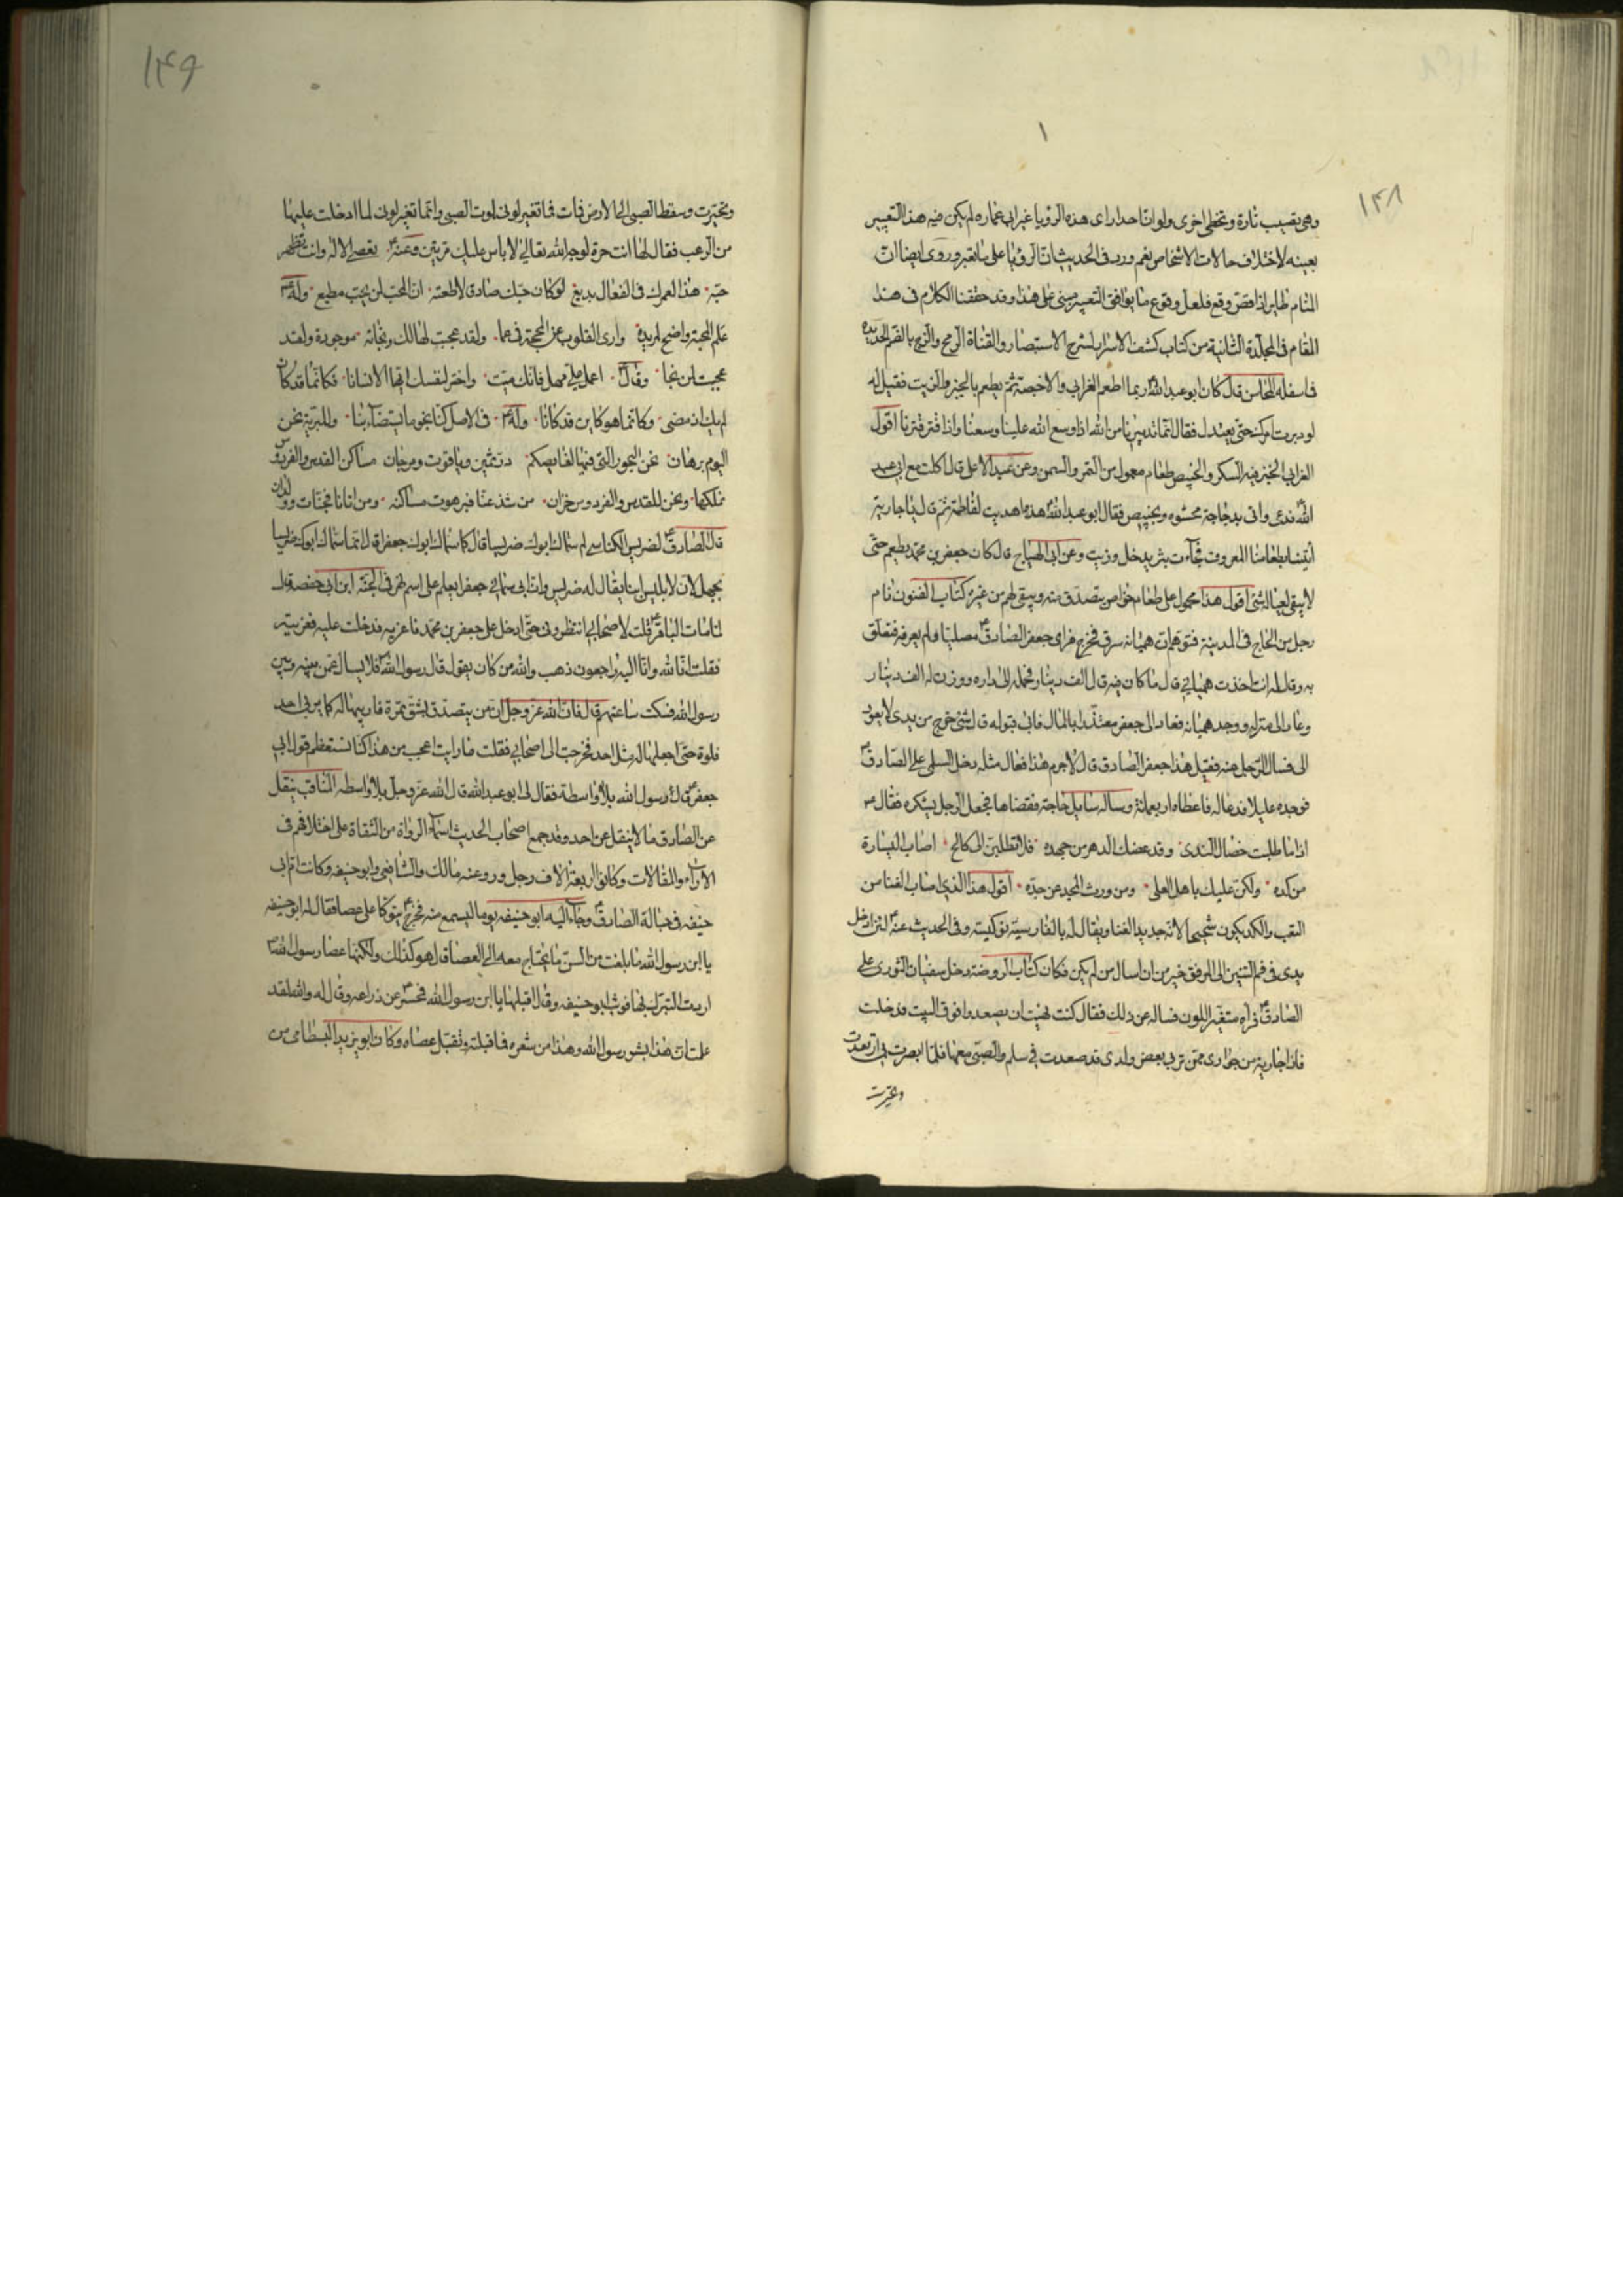 ١٤٨
وهي تصيب تارة وتخطى اخرى ولو ان احدا راى هذه الرؤيا غير ابي عماره لم يكن فيه هذا التعبير
بعينه لاختلاف حالات الاشخاص نعم ورد في الحديث ان الرؤيا على ما تعبر وروى ايضا ان
المنام طاير اذا قص وقع فلعل وقوع ما يوافق التعبير مبنى على هذا وقد حققنا الكلام في هذا
المقام في المجلدة الثانية من كتاب كشف الاسرار لشرح الاستبصار والقناة الرمح والزج بالضم الحديدة
في اسفله المحاسن قال كان ابو عبد الله ع ربما اطعم الفرانى والاخبصة ثم يطعم بالخبز والزيت فقيل له
لو دبرت امرك حتى يعتدل فقال انما تدبيرنا من الله اذا وسع الله علينا وسعنا واذا قتر قترنا اقول
الفرانى الخبز فيه السكر والخبيص طعام معمول من التمر والسمن وعن عبد الاعلى قال اكلت مع ابى عبد
الله فدعى واتى بدجاجة محشوه وبخبيص فقال ابو عبد الله ع هذه اهديت لفاطمة ثم قال يا جارية
ايتينا بطعامنا المعروف فجآءت بثريد خل وزيت وعن ابى الهياج قال كان جعفر بن محمد يطعم حتى
لا يبقى لعياله شئ اقول هذا محمول على طعام خواص يتصدق منه ويبقى لهم من غيره كتاب الفنون نام
رجل من الحاج في المدينة فتوهم ان هميانه سرق فخرج فراى جعفر الصادق ع مصليا ولم يعرفه فتعلق
به وقال له انت اخذت هميانى قال ما كان فيه قال الف دينار فحمله الى داره ووزن له الف دينار
وعاد الى منزله ووجد هميانه فعاد الى جعفر معتذرا بالمال فابى قبوله قال شئ خرج من يدى لا يعود
الى فسال الرجل عنه فقيل هذا جعفر الصادق قال لا جرم هذا فعال مثله دخل السلمى على الصادق ع
فوجده عليلا فدعا له فاعطاه اربعمائة وساله سايل حاجة فقضاها فجعل الرجل يشكره فقال ع
اذا ما طلبت خصال الندى وقد عضك الدهر من جهده فلا تطلبن الى كالح اصاب اليسارة
من كده ولكن عليك باهل العلى ومن ورث المجد عن جده اقول هذا الذى اصاب الغنا من
التعب والكد يكون شحيحا لانه جديد الغنا ويقال له بالفارسية نوكيسة وفى الحديث عنه ع لئن ادخل
يدى فى فم التنين الى المرفق خير من ان اسال من لم يكن فكان كتاب الروضة دخل سفيان الثورى على
الصادق ع فرآه متغير اللون فساله عن ذلك فقال كنت نهيت ان يصعدوا فوق البيت فدخلت
فاذا جارية من جوارى ممن تربى بعض ولدى قد صعدت في سلم والصبى معها فلما ابصرت بى ارتعدت
وتحيرت
١٤٩
وتحيرت وسقط الصبى الى الارض فمات فما تغير لونى لموت الصبى وانما تغير لونى لما ادخلت عليها
من الرعب فقال لها انت حرة لوجه الله تعالى لا باس عليك مرتين وعنه ع تعصى الاله وانت تظهر
حبه هذا لعمرك فى الفعال بديع لو كان حبك صادقا لاطعته ان المحب لمن يحب مطيع وله ع
علم المحجة واضح لمريده وارى القلوب عن المحجة فى عما ولقد عجبت لهالك ونجاته موجودة ولقد
عجبت لمن نجا وقال ع اعمل على مهل فانك ميت واختر لنفسك ايها الانسانا فكانما قد كان
لم يك اذ مضى وكانما هو كاين قد كانا وله ع فى الاصل كنا نجوما يستضآء بنا وللبرية نحن
اليوم برهان نحن البحور التى فيها لغايصكم در ثمين وياقوت ومرجان مساكن القدس والفردوس
نملكها ونحن للقدس والفردوس خزان من شذ عنا فبرهوت مساكنه ومن اتانا فجنات وولدان
قال الصادق ع لضريس الكناسى لم سماك ابوك ضريسا قال كما سماك ابوك جعفرا قال انما سماك ابوك ضريسا
بجهل لان لابليس ابنا يقال له ضريس وان ابى سمانى جعفرا بعلم على اسم نهر فى الجنة ابن ابى حفصة قال
لما مات الباقر ع قلت لاصحابى انتظرونى حتى ادخل على جعفر بن محمد فاعزيه فدخلت عليه فعزيته
فقلت انا لله وانا اليه راجعون ذهب والله من كان يقول قال رسول الله ص فلا يسال عمن بينه وبين
رسول الله فسكت ساعة ثم قال قال الله عز وجل ان من يتصدق بشق تمرة فاربيها له كما يربى احد
فلوه حتى اجعلها له مثل احد فخرجت الى اصحابى فقلت ما رايت اعجب من هذا كنا نستعظم قول ابى
جعفر ع قال رسول الله بلا واسطة فقال لى ابو عبد الله قال الله عز وجل بلا واسطه المناقب ينقل
عن الصادق ما لا ينقل عن احد وقد جمع اصحاب الحديث اسمآء الرواة من الثقاة على اختلافهم فى
الاراء والمقالات وكانوا اربعة آلاف رجل وروى عنه مالك والشافعى وابو حنيفه وكانت ام ابى
حنيفه فى حبالة الصادق ع وجآء اليه ابو حنيفه يوما ليسمع منه فخرج ع يتوكا على عصا فقال له ابو حنيفه
يا ابن رسول الله ما بلغت من السن ما يحتاج معه الى العصا قال هو كذلك ولكنها عصا رسول الله ص
اردت التبرك بها فوثب ابو حنيفه وقال اقبلها يا ابن رسول الله فحسر ع عن ذراعه وقال له والله لقد
علمت ان هذا بشر رسول الله وهذا من شعره فما قبلته وتقبل عصاه وكان ابو يزيد البسطامى من